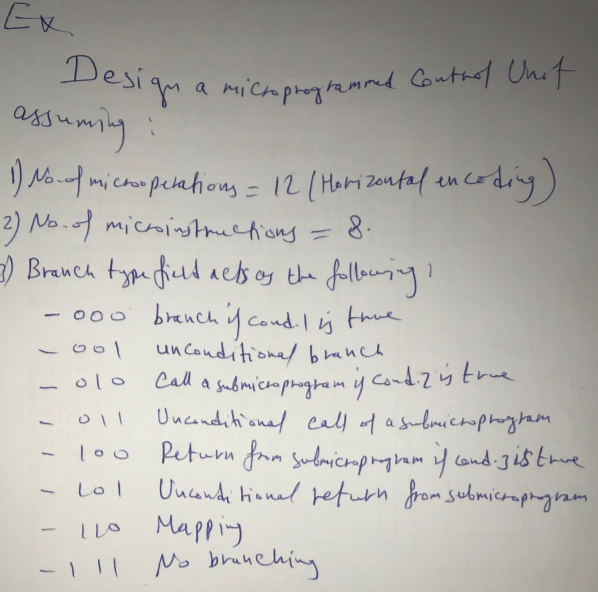 Ex
Design a microprogrammed Control Unit
assuming :
1) No. of microoperations = 12 (Horizontal encoding)
2) No. of microinstructions = 8.
3) Branch type field acts as the following;
- 000 branch if cond.1 is true
- 001 unconditional branch
- 010 Call a submicroprogram if cond.2 is true
- 011 Unconditional call of a submicroprogram
- 100 Return from submicroprogram if cond.3 is true
- 101 Unconditional return from submicroprogram
- 110 Mapping
- 111 No branching